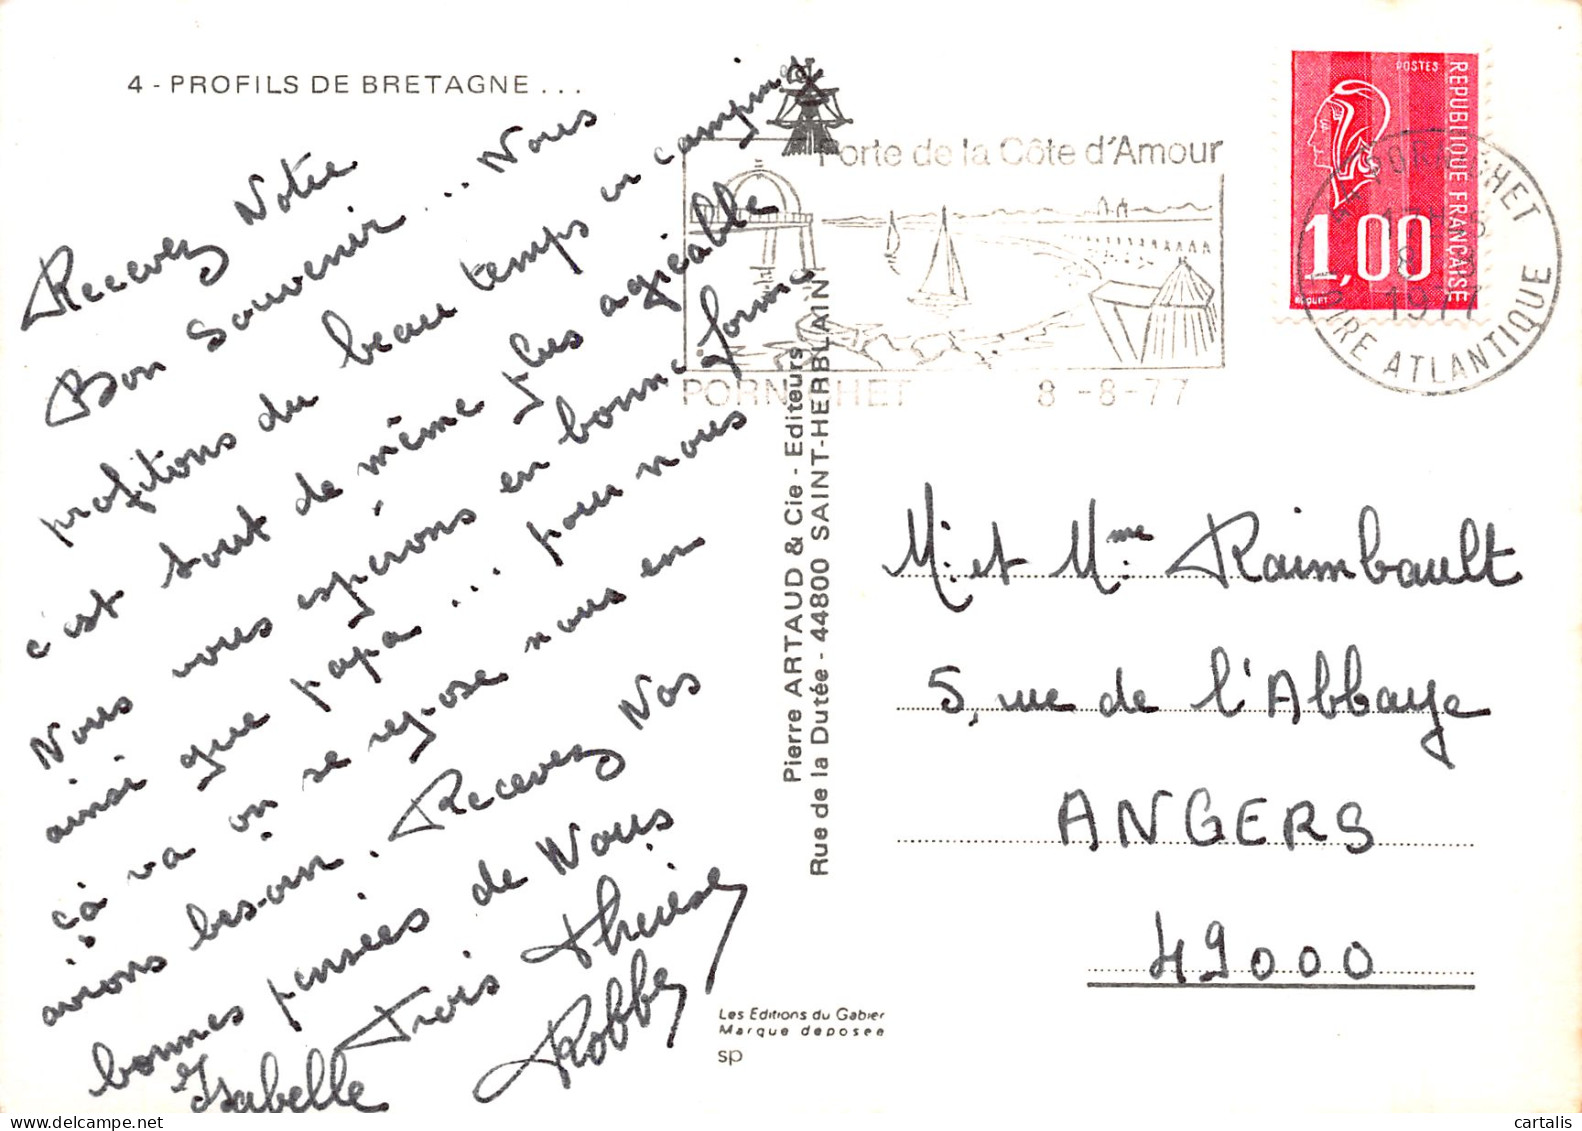 4 - PROFILS DE BRETAGNE . . .
Recevez Notre
Bon Souvenir ... Nous
profitons du beau temps en camping
c'est tout de même plus agréable
Nous vous espérons en bonne forme
ainsi que papa ... pour nous
çà va on se repose nous en
avions besoin. Recevez Nos
bonnes pensées de Nous
Trois Thérèse
Isabelle Robby
Porte de la Côte d'Amour
PORNICHET 8 -8-77
POSTES
REPUBLIQUE FRANÇAISE
1,00
BEQUET
PORNICHET
1977
LOIRE ATLANTIQUE
Pierre ARTAUD & Cie - Editeurs
Rue de la Dutée - 44800 SAINT-HERBLAIN
M. et Mme Raimbault
5, rue de l'Abbaye
ANGERS
49000
Les Editions du Gabier
Marque deposee
sp
cartalis